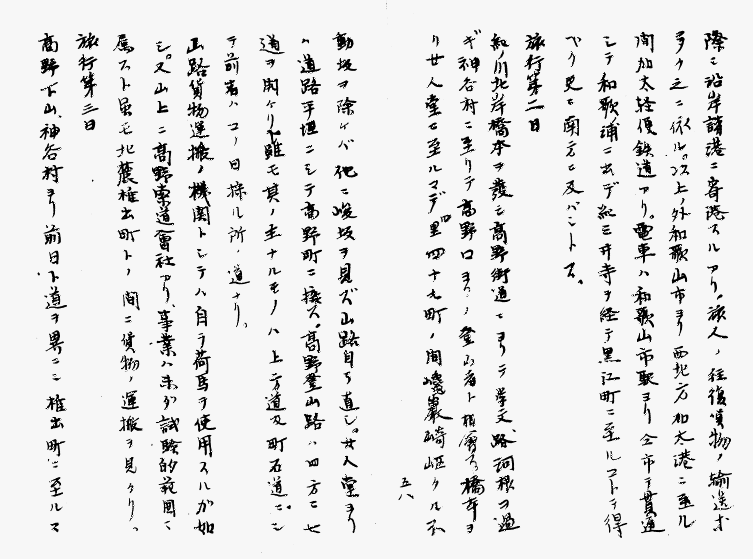 際ニ沿岸諸港ニ寄港スルアリ。旅人ノ往復貨物ノ輸送ホ
多ク之ニ依ル。次上ノ外和歌山市ヨリ西北方加太港ニ至ル
間加太軽便鉄道アリ。電車ハ和歌山市駅ヨリ全市ヲ貫通
シテ和歌浦ニ出デ紀三井寺ヲ経テ黒江町ニ至ルコトヲ得
ベク更ニ南方ニ及バントス。
旅行第二日
紀ノ川北岸橋本ヲ発シ高野街道ニヨリテ学文路、河根ヲ過
ギ神谷村ニ至リテ高野口ヨリノ登山者ト相會ス。橋本ヨ
リ女人堂ニ至ルマデ 里四十九町ノ間 巖崎嶇タル不
五八
動坂ヲ除ケバ他ニ峻坂ヲ見ズ山路自ラ直シ。女人堂ヨリ
ハ道路平坦ニシテ高野町ニ接ス。高野登山路ハ四方ニ七
道ヲ開ケリト雖モ其ノ主ナルモノハ上方道及町石道ニシ
テ前者ハコノ日採ル所ノ道ナリ。
山路貨物運搬ノ機関トシテハ自ラ荷馬ヲ使用スルガ如
シ。又山上ニ高野索道會社アリ、事業ハ未ダ試験的範囲ニ
属スト虽モ北麓椎出町トノ間ニ貨物ノ運搬ヲ見タリ。
旅行第三日
高野下山、神谷村ヨリ前日ト道ヲ異ニシ椎出町ニ至ルマ